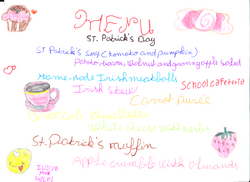 MENU
ST. Patrick's Day
ST Patrick's Soup (tomato and pumpkin)
Potato, bacon, walnut and granny apple salad
Home-made Irish meatballs
School cafeteria
Irish Stew
Carrot puree
with
St. Patrick's muffin
Apple crumble with almonds